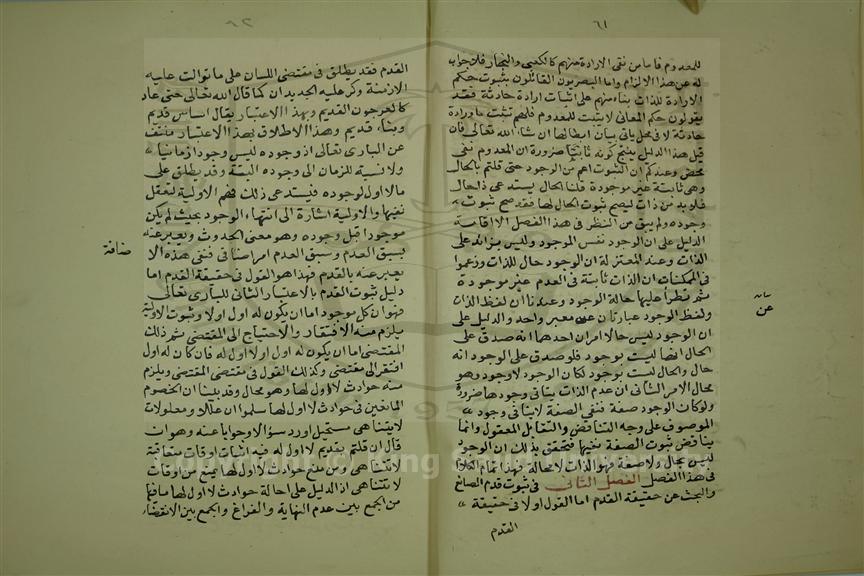 ٦١
للمعدوم فاما من نفى الارادة منهم كالكعبي والنجار فلا جواب
له عن هذا الالزام واما البصريون القائلون بثبوت حكم
الارادة للذات بناء منهم على اثبات ارادة حادثة فقد
يقولون حكم المعاني لا يثبت للمعدوم فلهم تثبت ما ورادة
حادثة لا في محل ياتي بيان ابطالها ان شاء الله تعالى فان
قيل هذا الدليل ينتج كونه ثابتا ضرورة ان المعدوم نفي
محض وعندكم ان الثبوت اعم من الوجود حتى قلتم بالحال
وهي ثابتة غير موجودة قلنا الحال يستدعي ذا حال
فلا بد من ذات ليصح ثبوت الحال لها فقد صح ثبوت
وجوده ولم يبق من النظر في هذا الفصل الا اقامة
الدليل على ان الوجود نفس الموجود وليس بزائد على
الذات وعند المعتزلة ان الوجود حال للذات وزعموا
في الممكنات ان الذات ثابتة في العدم غير موجودة
ثم تطرأ عليها حالة الوجود وعندنا ان لفظ الذات
ولفظ الوجود عبارتان عن معبر واحد والدليل على
ان الوجود ليس حالا امران احدهما انه صدق على
الحال انها ليست بوجود فلو صدق على الوجود انه
حال والحال ليست بوجود لكان الوجود لا وجود وهو
محال الامر الثاني ان عدم الذات ينافي وجودها ضرورة
ولو كان الوجود صفة فنفي الصفة لا ينافي وجود
الموصوف على وجه التناقض والتقابل المعقول وانما
يناقض ثبوت الصفة نفيها فتحقق بذلك ان الوجود
ليس بحال ولا صفة فهو الذات لا محالة فهذا تمام الكلام
في هذا الفصل الفصل الثاني في ثبوت قدم الصانع
والبحث عن حقيقة القدم اما القول اولا في حقيقة
القدم
بيانه
عن
٦٢
القدم فقد يطلق في مقتضى اللسان على ما توالت عليه
الازمنة وكر عليه الجديدان كما قال الله تعالى حتى عاد
كالعرجون القديم وبهذا الاعتبار يقال اساس قديم
وبناء قديم وهذا الاطلاق بهذا الاعتبار منتف
عن البارى تعالى اذ وجوده ليس وجودا زمانيا
ولا نسبة للزمان الى وجوده البتة وقد يطلق على
ما لا اول لوجوده فيستدعي ذلك فهم الاولية لتعقل
نفيها والاولية اشارة الى انتهاء الوجود بحيث لم يكن
موجودا قبل وجوده وهو معنى الحدوث ويعبر عنه
بسبق العدم وسبق العدم امر اضافي فنفي هذه الا
يعبر عنه بالقدم فهذا هو القول في حقيقة القدم اما
دليل ثبوت القدم بالاعتبار الثاني للبارى تعالى
فهو ان كل موجود اما ان يكون له اول اولا وثبوت الاولية
يلزم منه الافتقار والاحتياج الى المقتضي ثم ذلك
المقتضي اما ان يكون له اول اولا اول له فان كان له اول
افتقر الى مقتضي وكذلك القول في مقتضي المقتضي ويلزم
منه حوادث لا اول لها وهو محال وقد بينا ان الخصوم
المانعين في حوادث لا اول لها سلموا ان عللا ومعلولات
لا يتناهى مستحيل اورد سؤالا وجوابا عنه وهو ان
قال ان قلتم بقديم لا اول له فيه اثبات اوقات متعاقبة
لا تتناهى ومن منع حوادث لا اول لها يمنع من اوقات
لا تتناهى اذ الدليل على احالة حوادث لا اول لها ما فيها
من الجمع بين عدم النهاية والفراغ والجمع بين الانقضاء
ضافة